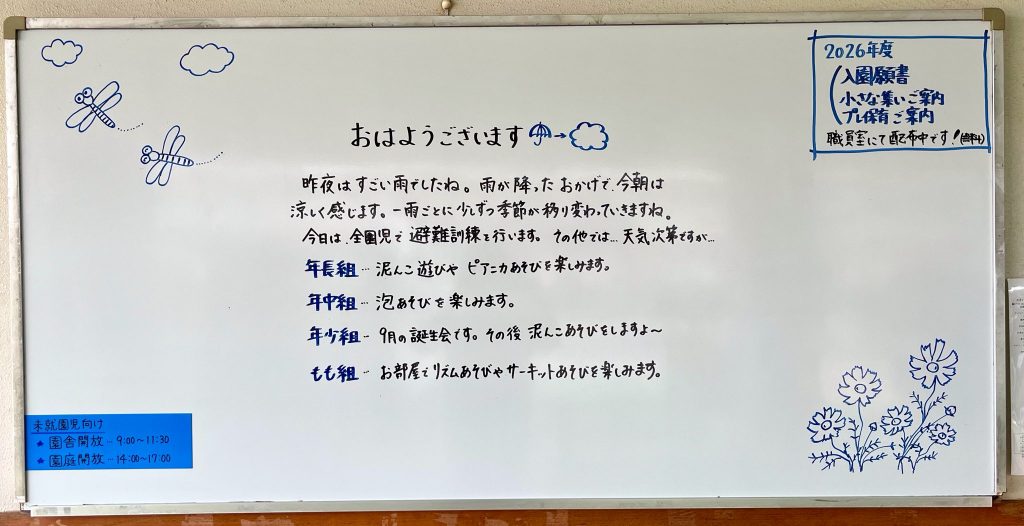 2026年度
入園願書
小さな集いご案内
プレ保育ご案内
職員室にて配布中です!(無料)
おはようございます
昨夜はすごい雨でしたね。雨が降ったおかげで、今朝は
涼しく感じます。一雨ごとに少しずつ季節が移り変わっていきますね。
今日は、全園児で避難訓練を行います。その他では…天気次第ですが…
年長組…泥んこ遊びやピアニカあそびを楽しみます。
年中組…泡あそびを楽しみます。
年少組…9月の誕生会です。その後泥んこあそびをしますよ〜
もも組…お部屋でリズムあそびやサーキットあそびを楽しみます。
未就園児向け
園舎開放…9:00〜11:30
園庭開放…14:00〜17:00